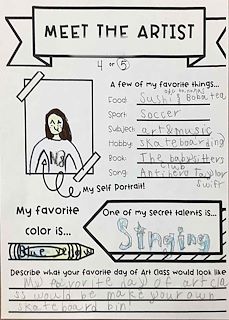 MEET THE ARTIST
4 or 5
A few of my favorite things...
Food: Sushi & Boba tea
Sport: Soccer
Subject: art & music
Hobby: skateboarding
Book: The babysitters
club
Song: Antihero Taylor
Swift
My Self Portrait!
My favorite
color is...
One of my secret talents is...
Singing
Describe what your favorite day of Art Class would look like
My favorite day of art cla
ss would be make your own
skateboard bin!